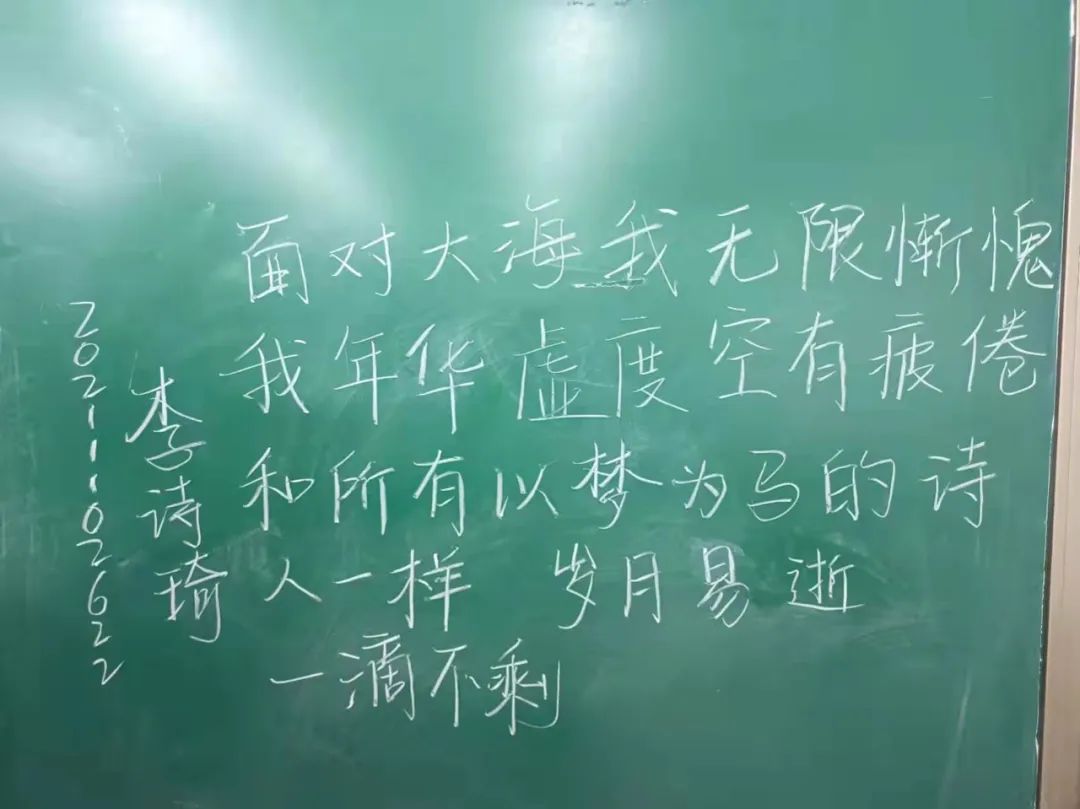 面对大海 我无限惭愧
我年华虚度 空有疲倦
和所有以梦为马的诗
人一样 岁月易逝
一滴不剩
李诗琦
2021110262​2